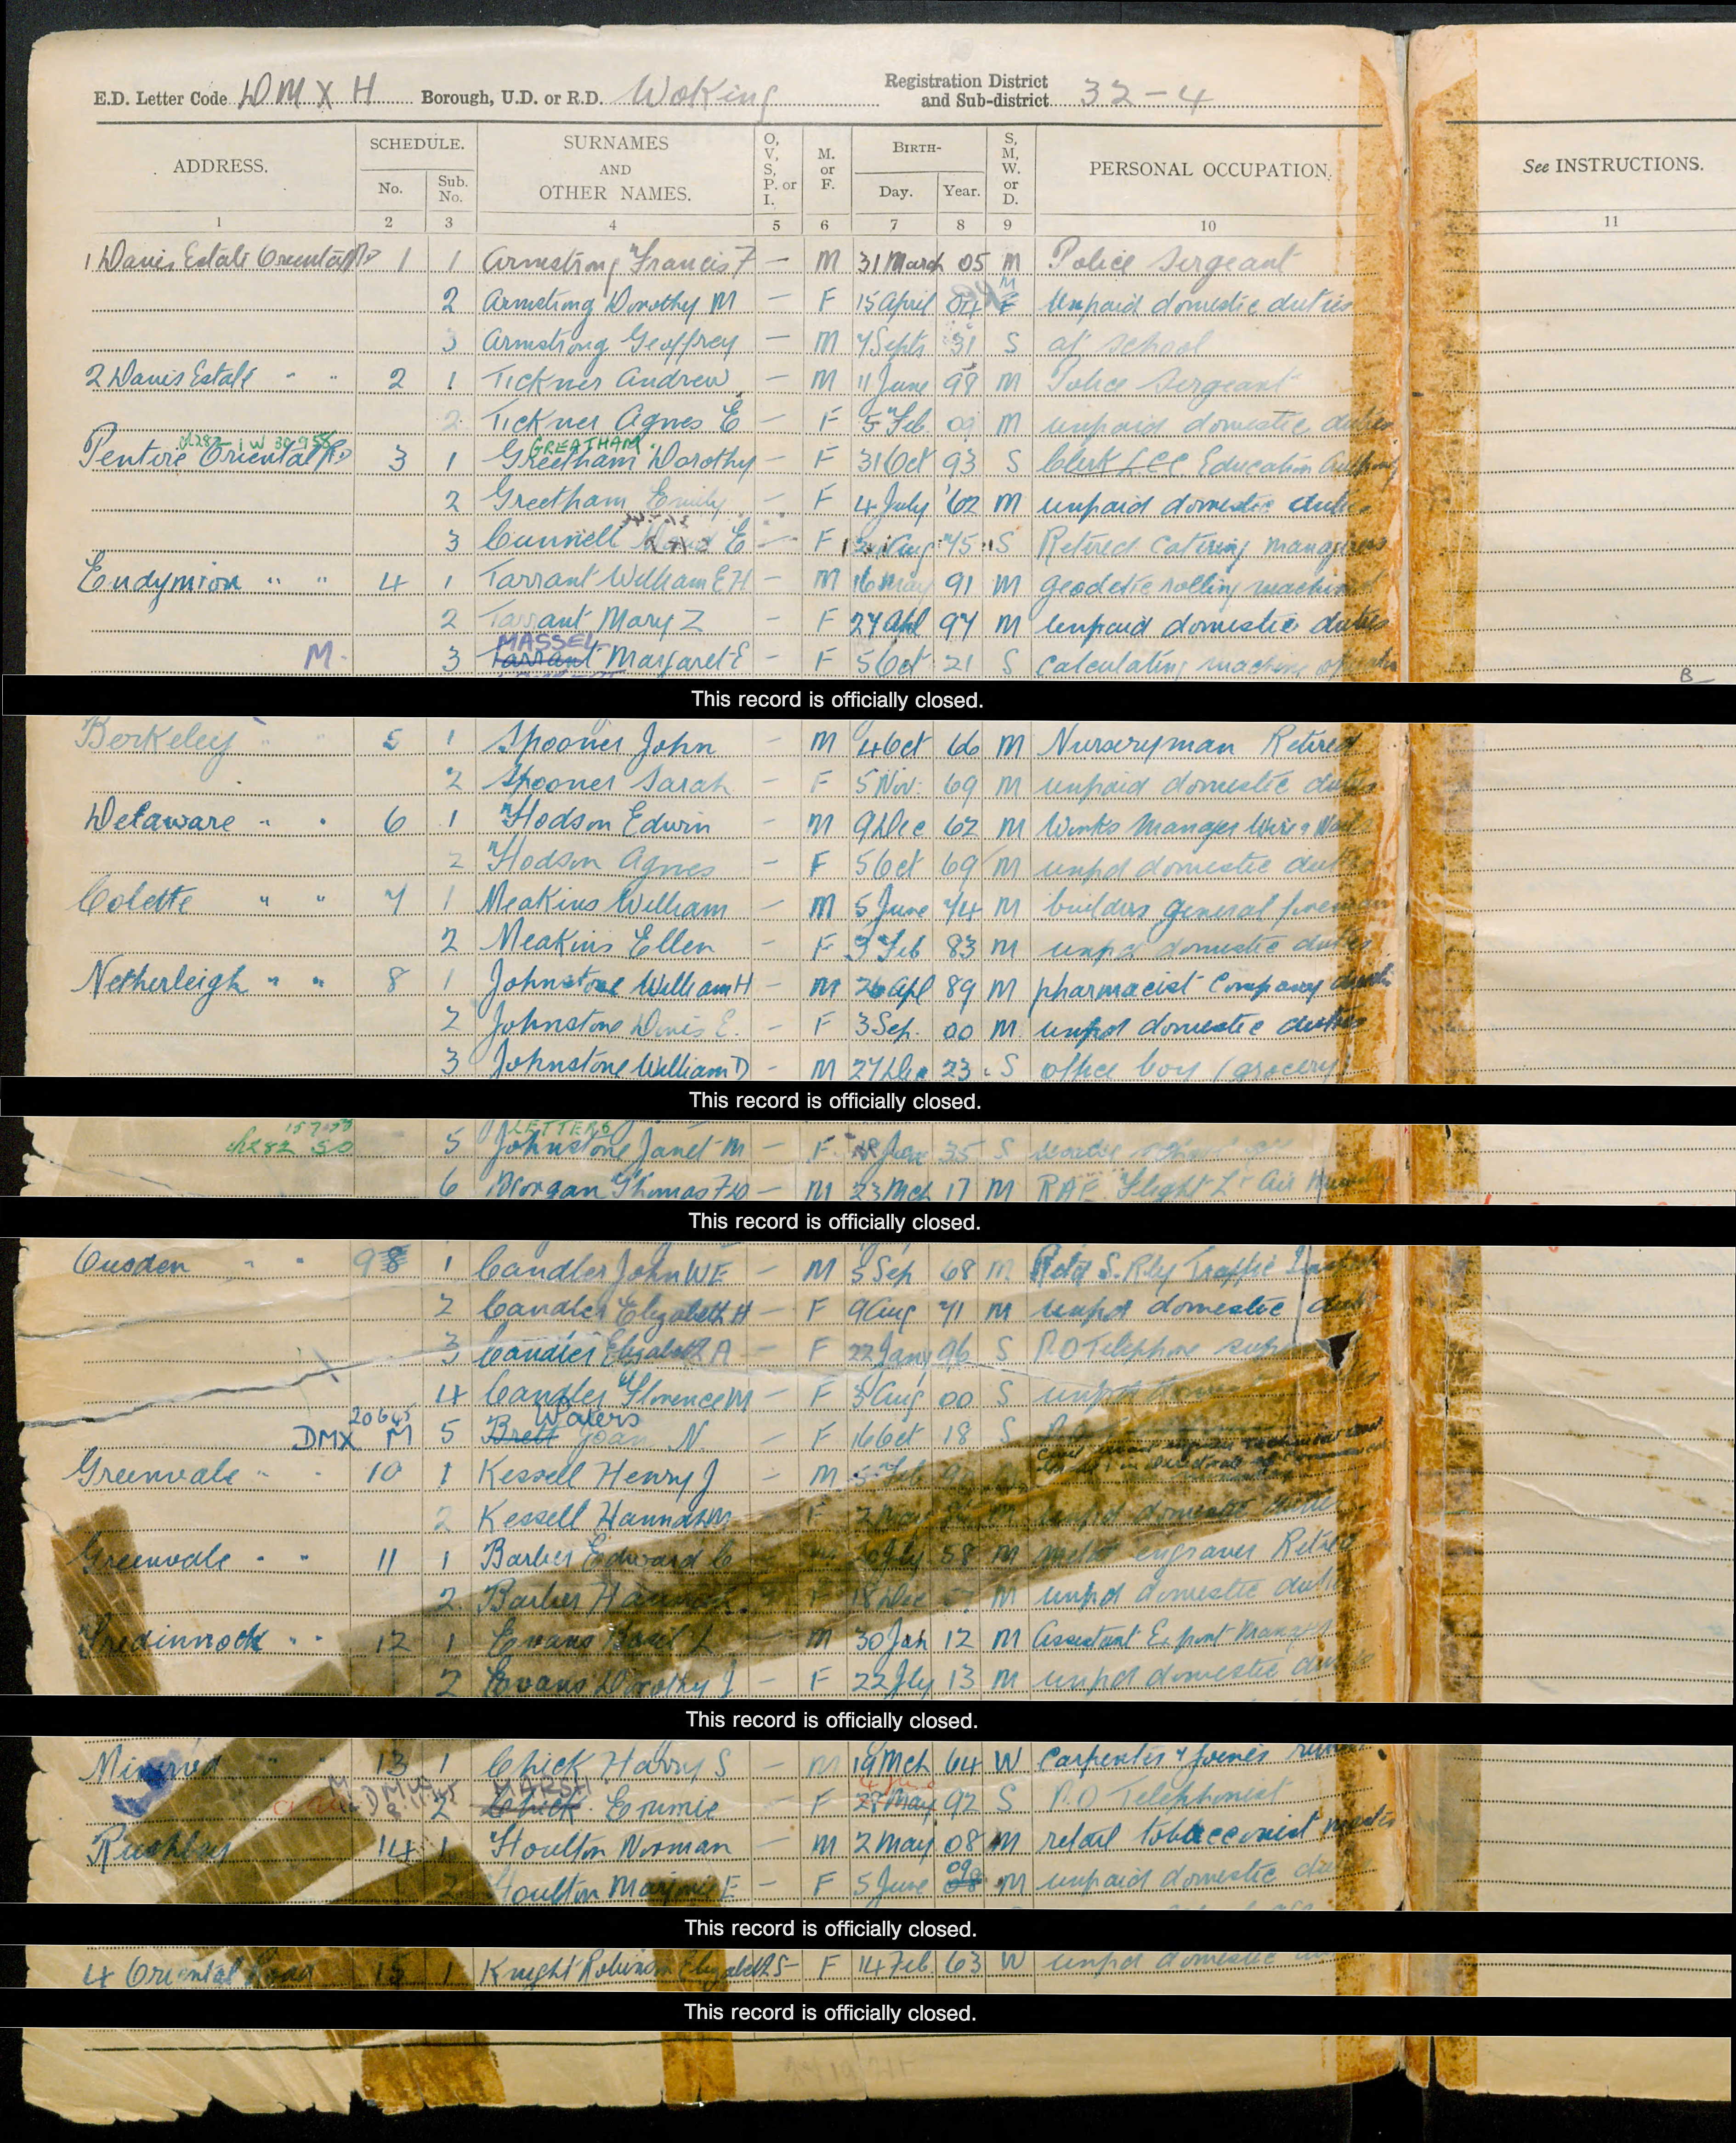 E.D. Letter Code DMXH Borough, U.D. or R.D. Woking Registration District and Sub-district 32-4
ADDRESS. SCHEDULE. No. Sub. No. SURNAMES AND OTHER NAMES. O, V, S, P. or I. M. or F. BIRTH- Day. Year. S, M, W. or D. PERSONAL OCCUPATION. See INSTRUCTIONS.
1 2 3 4 5 6 7 8 9 10 11
1 Davis Estate Oriental Rd 1 1 Armstrong Francis F — M 31 March 05 M Police Sergeant
2 Armstrong Dorothy M — F 15 April 04 M Unpaid domestic duties
3 Armstrong Geoffrey — M 7 Septr 31 S at school
2 Davis Estate " " 2 1 Tickner Andrew — M 11 June 98 M Police Sergeant
2 Tickner Agnes E — F 5 Feb 09 M unpaid domestic duties
GREATHAM
Pentire Oriental Rd 3 1 Greetham Dorothy — F 31 Oct 93 S Clerk LCC Education Authority
2 Greetham Emily — F 4 July 62 M unpaid domestic duties
3 Cunnell E — F Aug 75 S Retired Catering manageress
Endymion " " 4 1 Tarrant William E H — M 16 May 91 M geodetic rolling machine
2 Tarrant Mary Z — F 27 Apl 97 M Unpaid domestic duties
MASSEL
M. 3 Tarrant Margaret E — F 5 Oct 21 S Calculating machine
B
This record is officially closed.
Berkeley " " 5 1 Spooner John — M 4 Oct 66 M Nurseryman Retired
2 Spooner Sarah — F 5 Nov. 69 M unpaid domestic duties
Delaware " " 6 1 Hodson Edwin — M 9 Dec 62 M Works Manager
2 Hodson Agnes — F 5 Oct 69 M unpd domestic duties
Colette " " 7 1 Meakins William — M 5 June 74 M builders general foreman
2 Meakins Ellen — F 3 Feb 83 M unpd domestic duties
Netherleigh " " 8 1 Johnstone William H — M 26 Apl 89 M pharmacist Company
2 Johnstone Doris E. — F 3 Sep. 00 M unpd domestic duties
3 Johnstone William D — M 27 Dec 23 S office boy (grocery)
This record is officially closed.
LETTERS
5 Johnstone Janet M — F 35 S
6 Morgan Thomas — M 23 Mch 17 M RAF Flight Lt Air
This record is officially closed.
Ousden " " 9 1 Candler John W E — M 5 Sep 68 M Retd S. Rly Traffic
2 Candler Elizabeth H — F 9 Aug 71 M unpd domestic duties
3 Candler Elizabeth A — F 22 Jany 96 S P.O Telephone
4 Candler Florence M — F 3 Aug 00 S unpd
Waters
DMX M 5 Brett Joan N. — F 16 Oct 18 S
Greenvale " " 10 1 Kessell Henry J — M Feb
2 Kessell Hannah M F 2 May M unpd domestic duties
Greenvale " " 11 1 Barber Edward C July 58 M engraver Retired
2 Barber F 18 Dec M unpd domestic duties
Tredinnock " " 12 1 Evans Basil L — M 30 Jan 12 M Assistant Export Manager
2 Evans Dorothy J — F 22 Jly 13 M unpd domestic duties
This record is officially closed.
Minerva " " 13 1 Chick Harry S — M 19 Mch 64 W Carpenter & Joiner
MARSH
2 Chick Ermie — F 27 May 92 S P.O Telephonist
14 1 Houlton Norman — M 2 May 08 M retail tobacconist
2 Houlton Marjorie E — F 5 June 09 M unpaid domestic duties
This record is officially closed.
4 Oriental Road 15 1 Knight Robinson Elizabeth S — F 14 Feb 63 W unpd domestic
This record is officially closed.